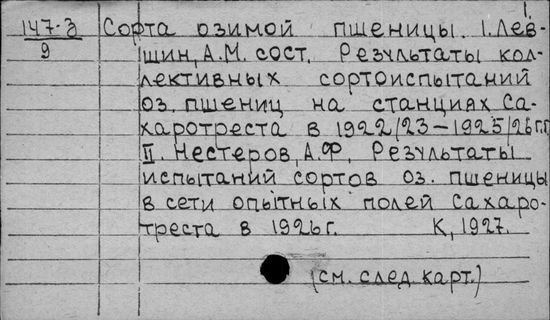 147-3 Сорта озимой пшеницы. I. Лев-
9 шин, А.М. сост. Результаты кол-
лективных сортоиспытаний
оз. пшениц на станциях Са-
харотреста в 1922/23-1925/26 г.г.
II. Нестеров, А.Ф. Результаты
испытаний сортов оз. пшеницы
в сети опытных полей Сахаро-
треста в 1926 г. К, 1927.
(см. след. карт.)